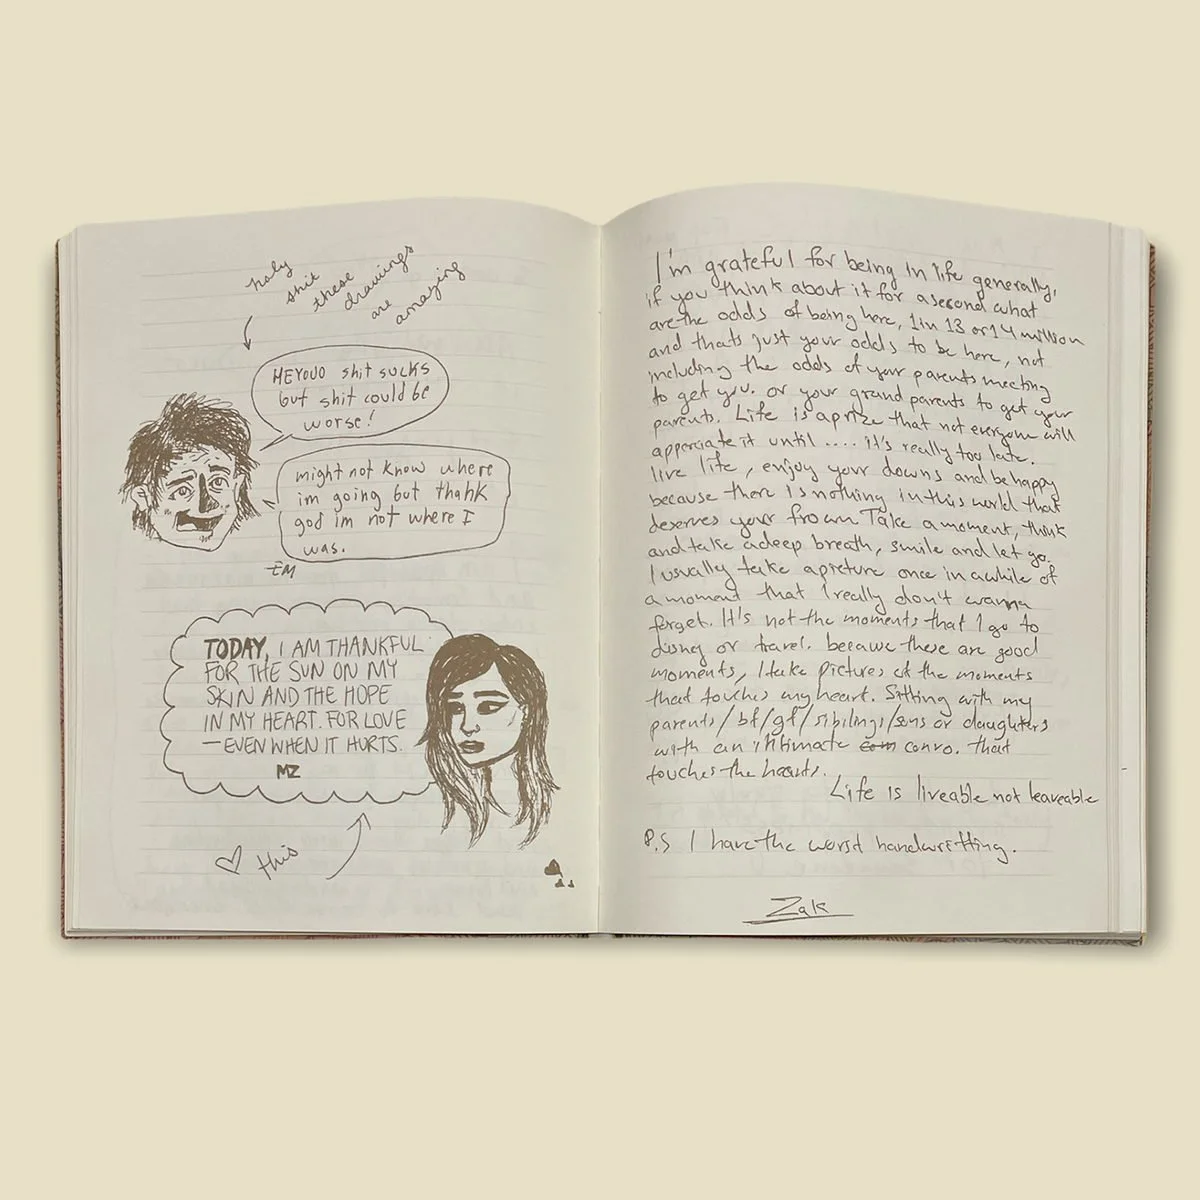 holy
shit
these
drawings
are
amazing
HEYOUO shit sucks
but shit could be
worse!
might not know where
im going but thank
god im not where I
was.
-EM
TODAY, I AM THANKFUL
FOR THE SUN ON MY
SKIN AND THE HOPE
IN MY HEART. FOR LOVE
—EVEN WHEN IT HURTS.
MZ
this
I'm grateful for being in life generally,
if you think about it for a second what
are the odds of being here, 1 in 13 or 14 million
and thats just your odds to be here, not
including the odds of your parents meeting
to get you. or your grand parents to get your
parents. Life is a prize that not everyone will
apperciate it until .... it's really too late.
live life, enjoy your downs and be happy
because there is nothing in this world that
deserves your frown Take a moment, think
and take a deep breath, smile and let go.
I usually take a picture once in a while of
a moment that I really don't wanna
forget. It's not the moments that I go to
disney or travel. because these are good
moments, I take pictures of the moments
that touches my heart. Sitting with my
parents/bf/gf/sibilings/sons or daughters
with an intimate com convo. that
touches the hearts.
Life is liveable not leaveable
P.S I have the worst handwritting.
Zak